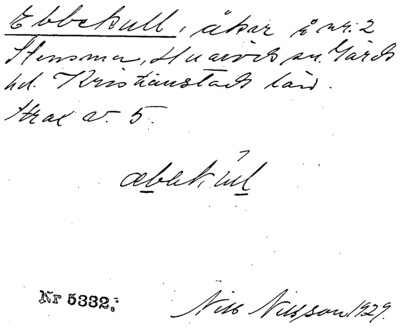 Ebbekull, åkar å nr: 2
Stensma, Huaröds sn. Gärds
hd. Kristianstads län.
Strax v. 5.
æbekul
Nr 5332.
Nils Nilsson 1929.